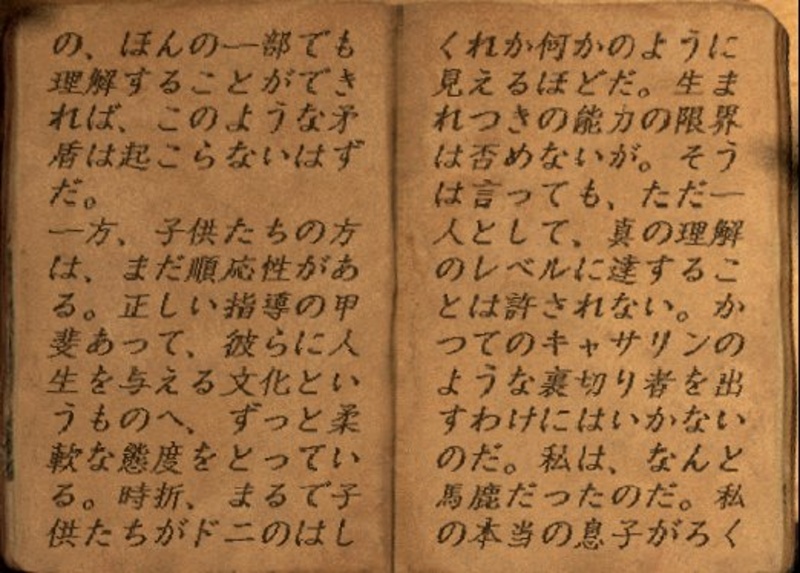 の、ほんの一部でも
理解することができ
れば、このような矛
盾は起こらないはず
だ。
一方、子供たちの方
は、まだ順応性があ
る。正しい指導の甲
斐あって、彼らに人
生を与える文化とい
うものへ、ずっと柔
軟な態度をとってい
る。時折、まるで子
供たちがドニのはし
くれか何かのように
見えるほどだ。生ま
れつきの能力の限界
は否めないが。そう
は言っても、ただ一
人として、真の理解
のレベルに達するこ
とは許されない。か
つてのキャサリンの
ような裏切り者を出
すわけにはいかない
のだ。私は、なんと
馬鹿だったのだ。私
の本当の息子がろく